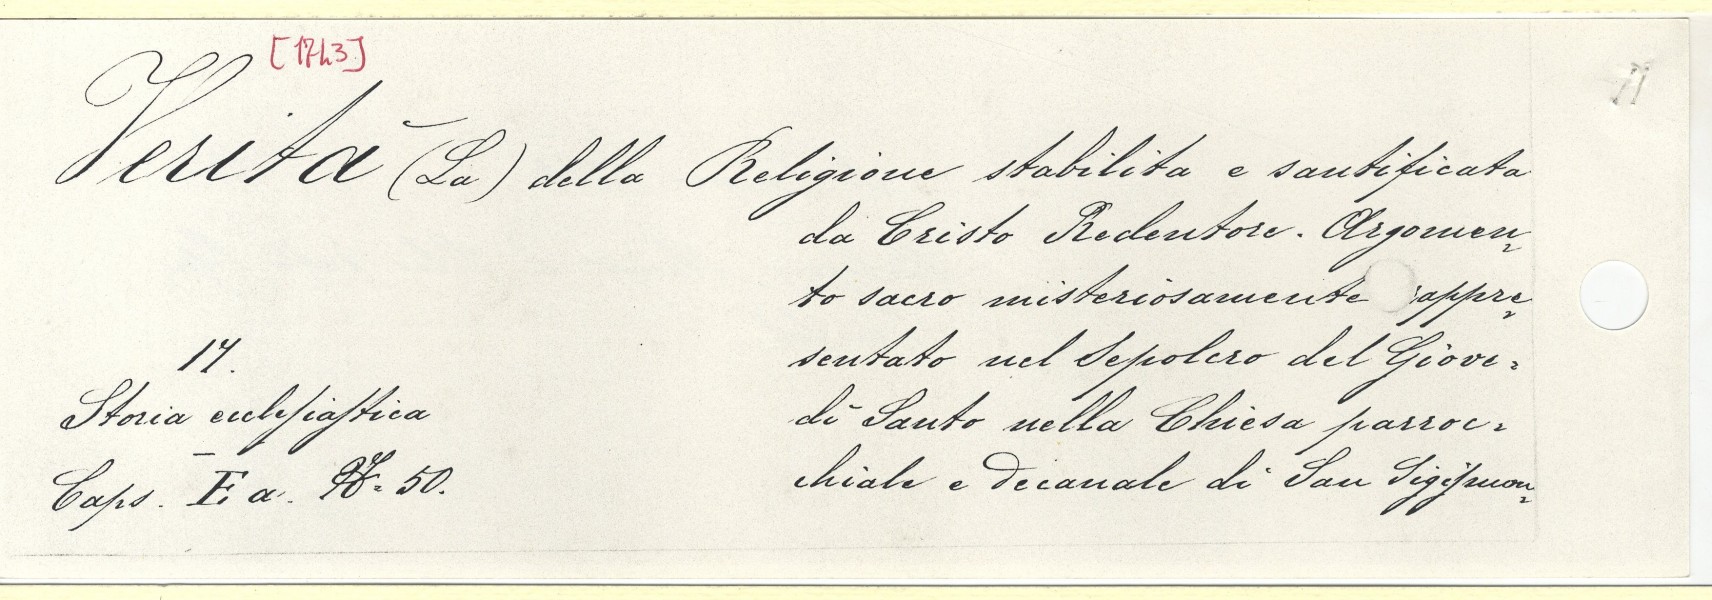 [1743]
Verità (La) della Religione stabilita e santificata
da Cristo Redentore. Argomen=
to sacro misteriosamente appre=
sentato nel Sepolcro del Giove=
dì Santo nella Chiesa parroc=
chiale e decanale di San Sigismon=
17.
Storia ecclesiastica
Caps. E a. N. 50.